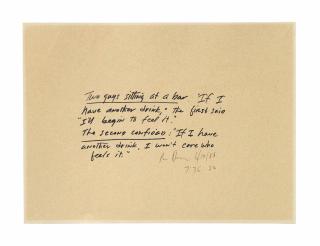 Two guys sitting at a bar. "If I
have another drink," the first said
"I'll begin to feel it."
The second confided: "If I have
another drink, I won't care who
feels it."